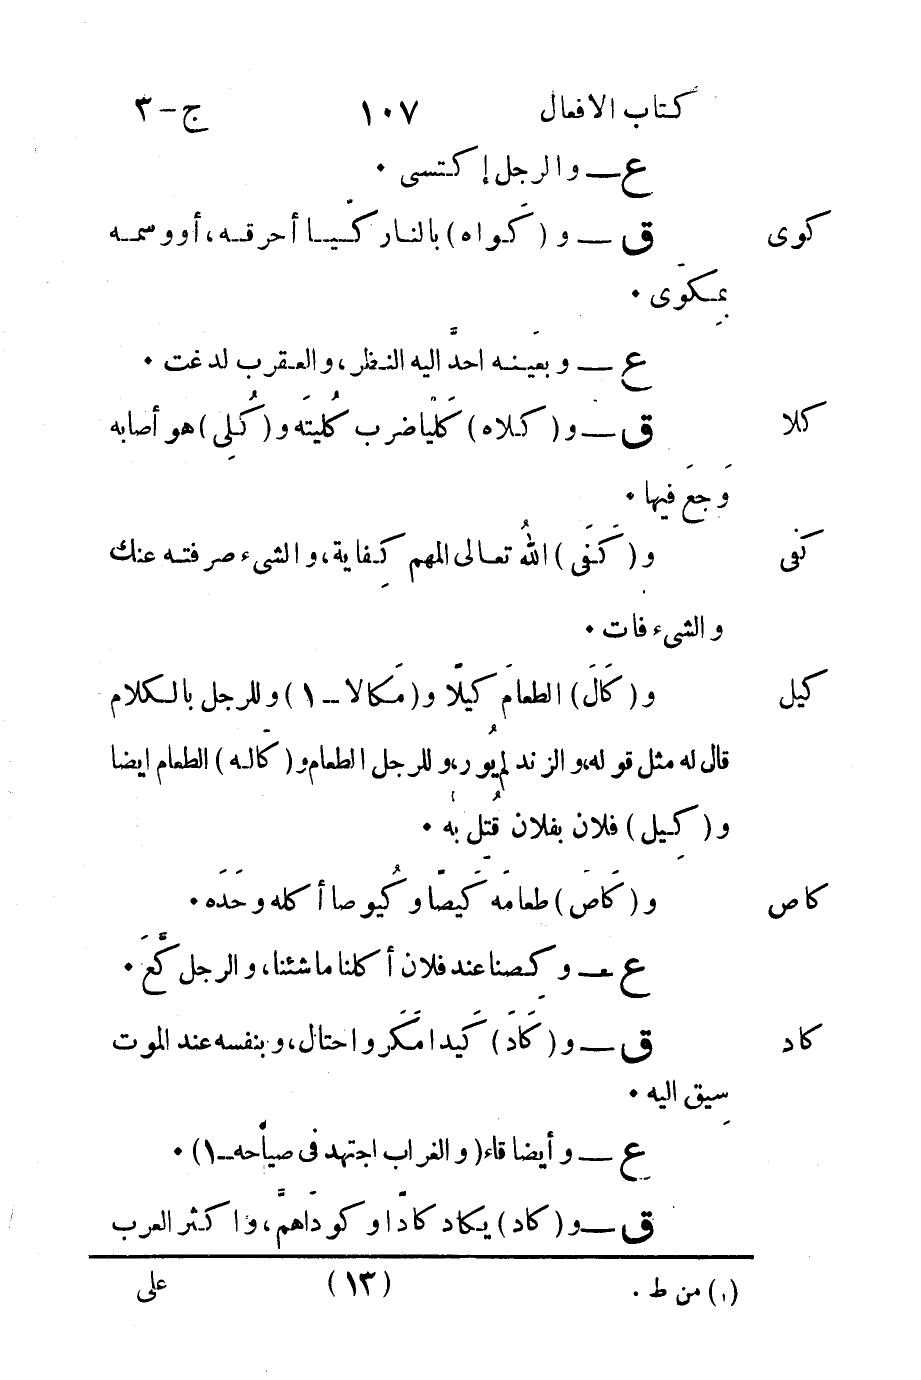 كتاب الافعال ١٠٧ ج – ٣
ع – و الرجل إكتسى ٠
كوى ق – و (كَواه) بالنار كيّا أحرقه، أو وسمه
بِمِكوَى ٠
ع – و بعَينه احدّ اليه النظر، و العقرب لدغت ٠
كلا ق – و (كلاه) كَلْيا ضرب كُليتَه و (كُلِى) هو أصابه
وَجعَ فيها ٠
كفى و (كَفَى) اللهُ تعالى المهم كِفاية، و الشىء صرفته عنك
و الشىء فات ٠
كيل و (كَالَ) الطعامَ كيلًا و (مَكالا – ١) و للرجل بالكلام
قال له مثل قوله، و الزند لم يُور، و للرجل الطعام و (كَاله) الطعام ايضا
و (كِيل) فلان بفلان قُتل به ٠
كاص و (كَاصَ) طعامَه كَيصًا و كُيوصا أكله وحَدَه ٠
ع – و كِصنا عند فلان أكلنا ما شئنا، و الرجل كَعَّ ٠
كاد ق – و (كَادَ) كَيدا مَكَر و احتال، و بنفسه عند الموت
سِيق اليه ٠
ع – و أيضا قاء (و الغراب اجتهد فى صياحه – ١) ٠
ق – و (كاد) يكاد كادًا و كودا هَمَّ، و اكثر العرب
(١) من ط . (١٣) على